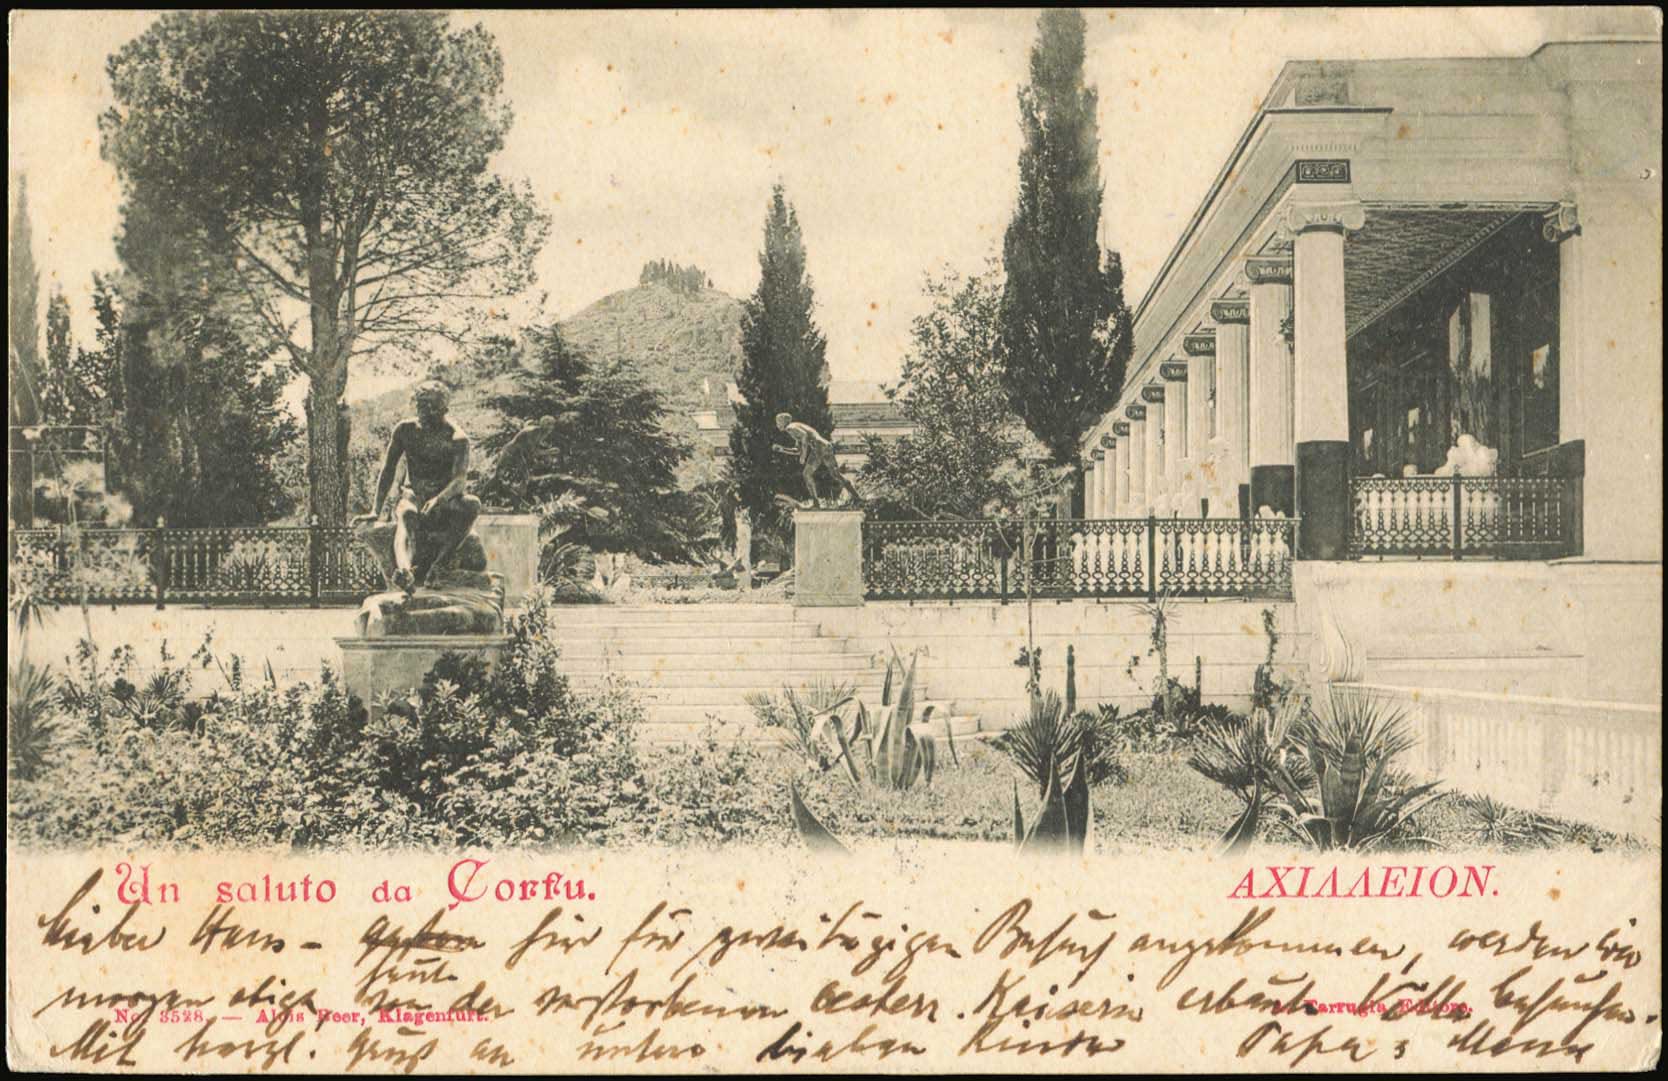 Un saluto da Corfu.
ΑΧΙΛΛΕΙΟΝ.
Lieber Hans – gestern hier für zweitägigen Besuch angekommen, werden wir
heute
morgen obige, von der verstorbenen oesterr. Kaiserin erbaute Villa besuchen.
No. 3528. — Alois Beer, Klagenfurt.
Farrugia Editore.
Mit herzl. Gruß an unsere lieben Kinder Papa & Mama